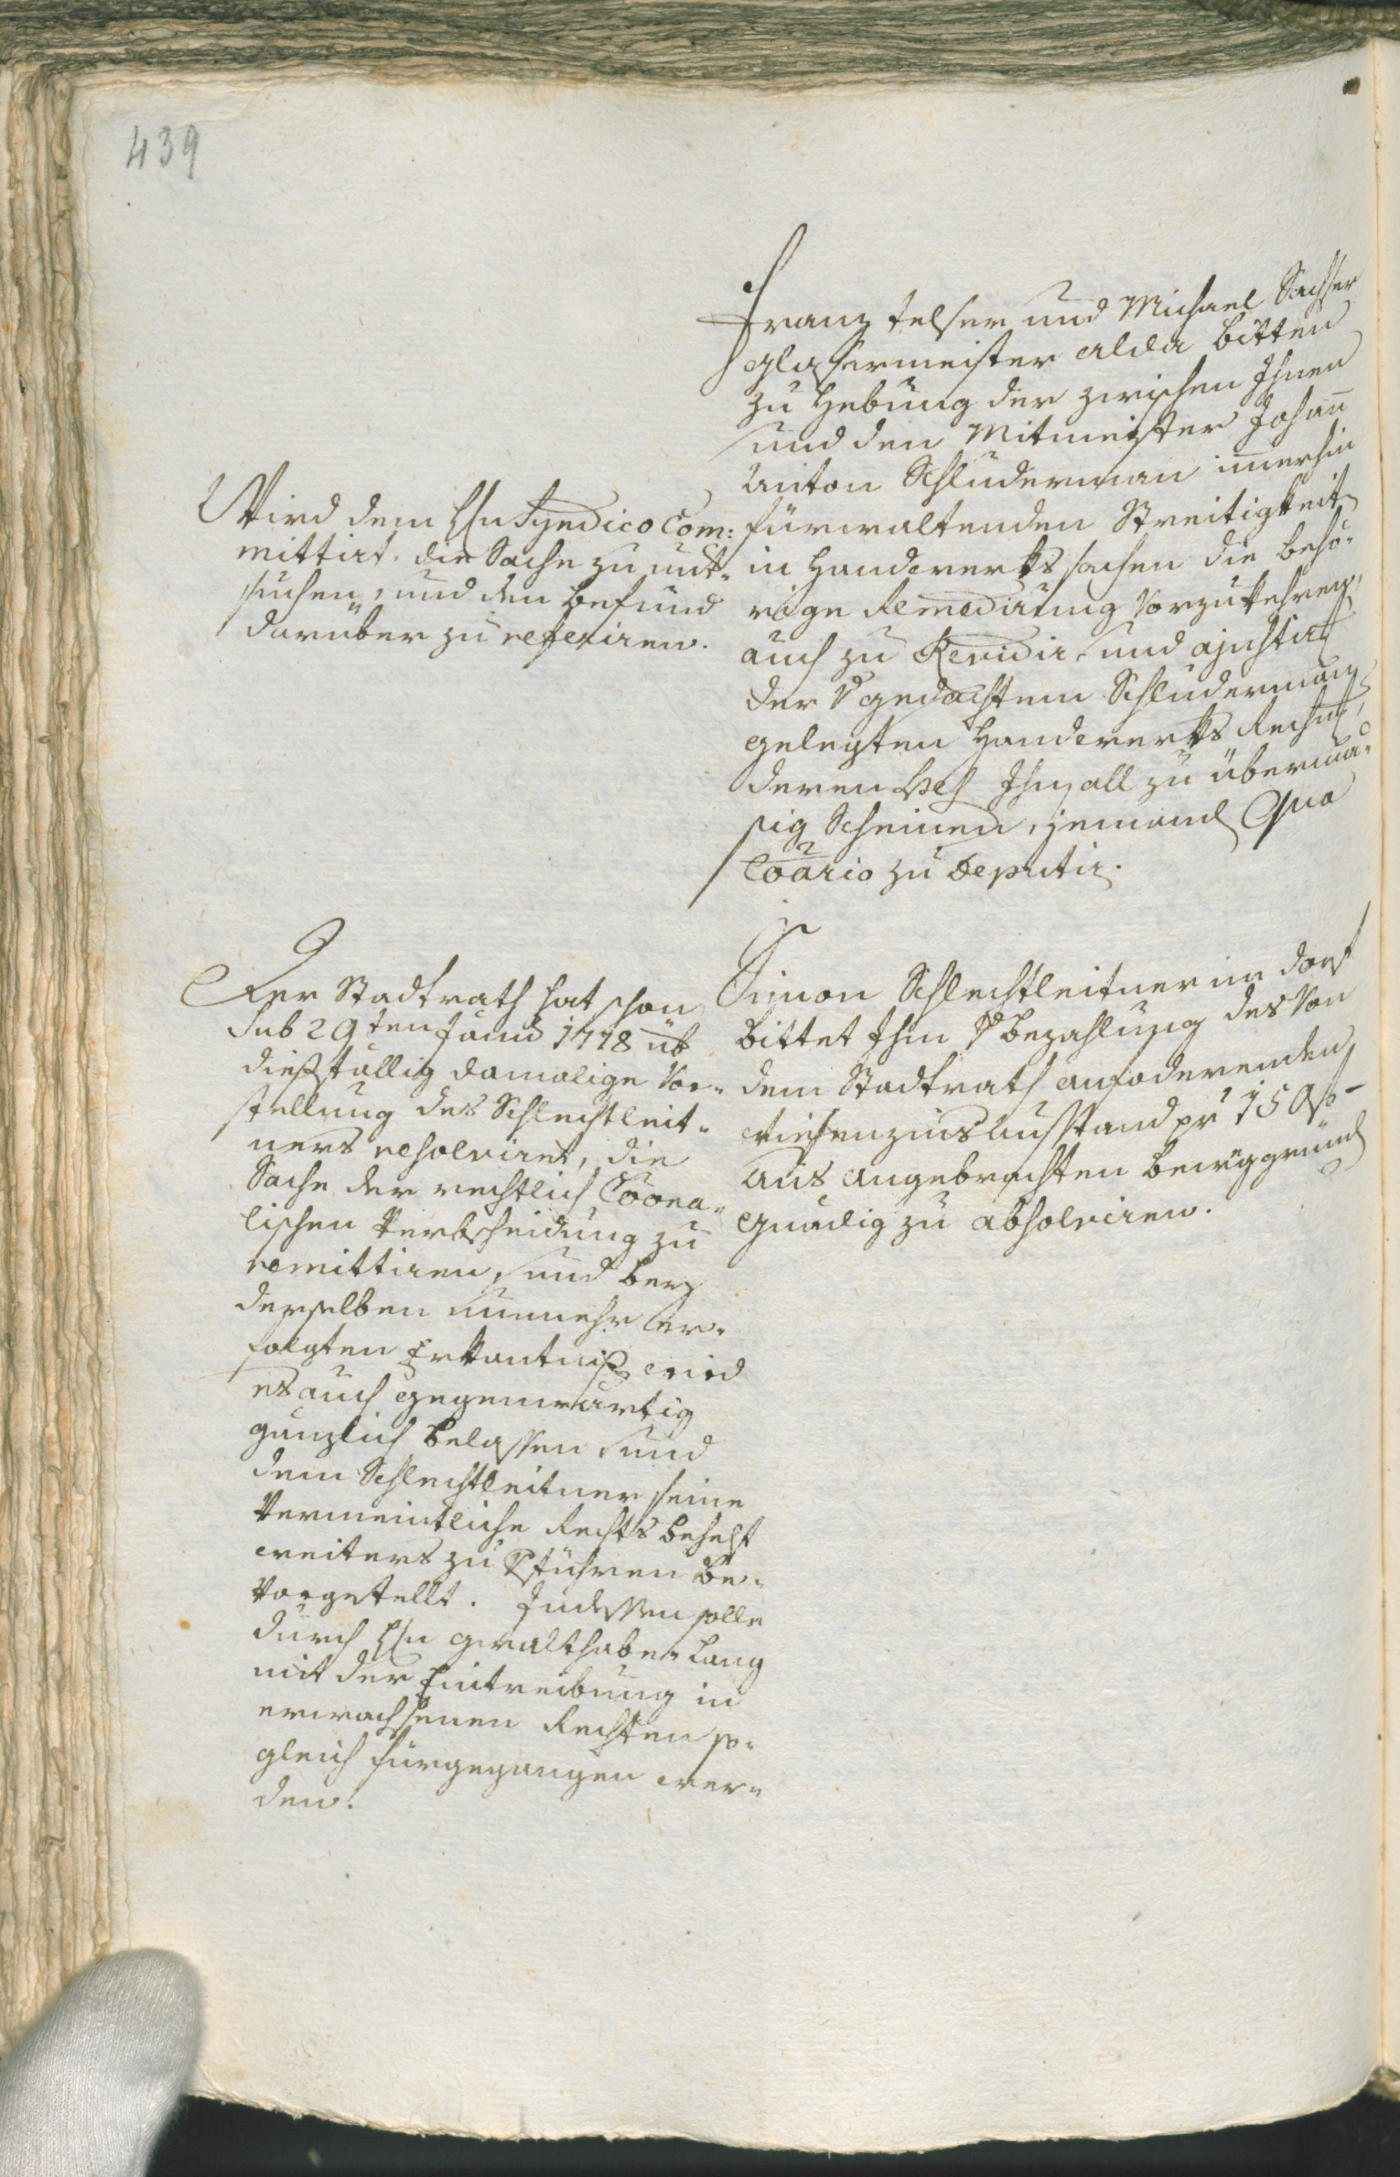 439
Franz Telser und Michael Sachser
Glasermeister alda bitten
zu Hebung der zwischen Ihnen
und den Mitmeister Johann
Anton Schluderman immerhin
fürwaltenden Streitigkeit
in Handwerkssachen die behö-
rige Remedirung vorzukehren,
auch zu Revidir und ajustir
der gedachtem Schluderman
gelegten Handwerks Rechn.
deren Ihn all zu übermä-
sig Scheinen, jemand Qua
Coario zu Deputir.
Wird dem Hn Syndico Com-
mittirt. die Sache zu unt-
suchen, und den Befund
darüber zu referiren.
Simon Schlechtleitner im Dorf
bittet Ihm Bezahlung des von
dem Stadtrath anfoderenden
Wiesenzinsausstand pr 150 f
aus angebrachten beweggründ
gnädig zu absolviren.
Der Stadtrath hat schon
Sub 29ten Junii 1778 üb
dießfällig damalige Vor-
stellung des Schlechtleit-
ners resolviret, die
Sache der rechtlich Coona-
lischen Verbscheidung zu
remittiren, und bey
derselben nunmehr er-
folgten Erkantniß wird
es auch gegenwärtig
gänzlich belassen und
dem Schlechtleitner seine
Vermeintliche Rechtsbehelf
weiters zu führen be-
vorgestellt. Indessen solle
durch Hn Gewalthaber Lang
mit der Eintreibung in
erwachsenen Rechten so-
gleich fürgegangen wer-
den.